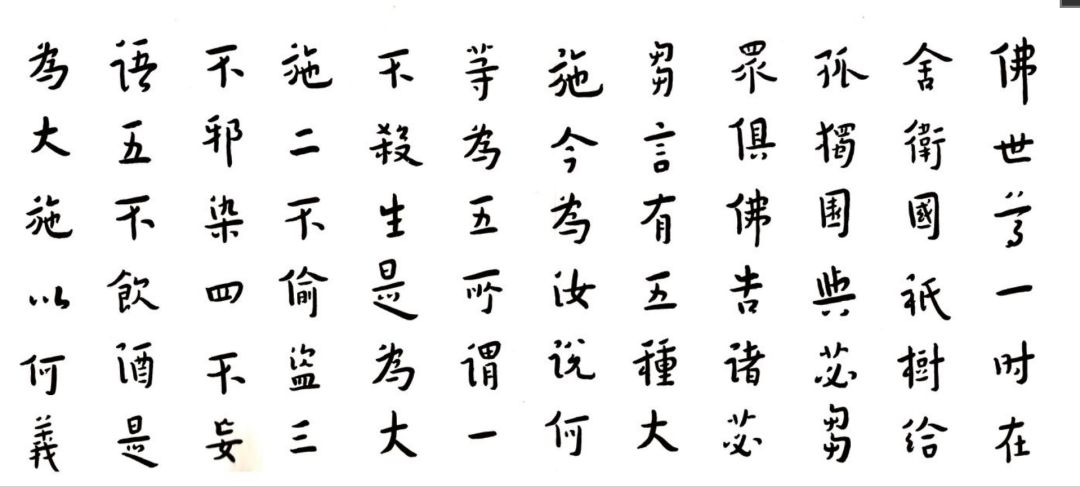 佛世尊一时在
舍衛國祇樹给
孤獨園與苾芻
眾俱佛告诸苾
芻言有五種大
施今為汝说何
等為五所谓一
不殺生是為大
施二不偷盜三
不邪染四不妄
语五不飲酒是
為大施以何義